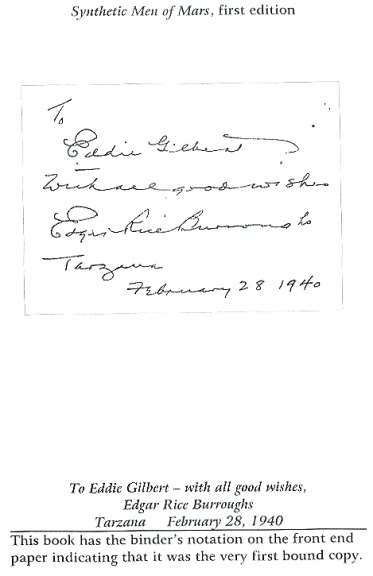 Synthetic Men of Mars, first edition
To
Eddie Gilbert
With all good wishes
Edgar Rice Burroughs
Tarzana
February 28 1940
To Eddie Gilbert – with all good wishes,
Edgar Rice Burroughs
Tarzana February 28, 1940
This book has the binder's notation on the front end
paper indicating that it was the very first bound copy.